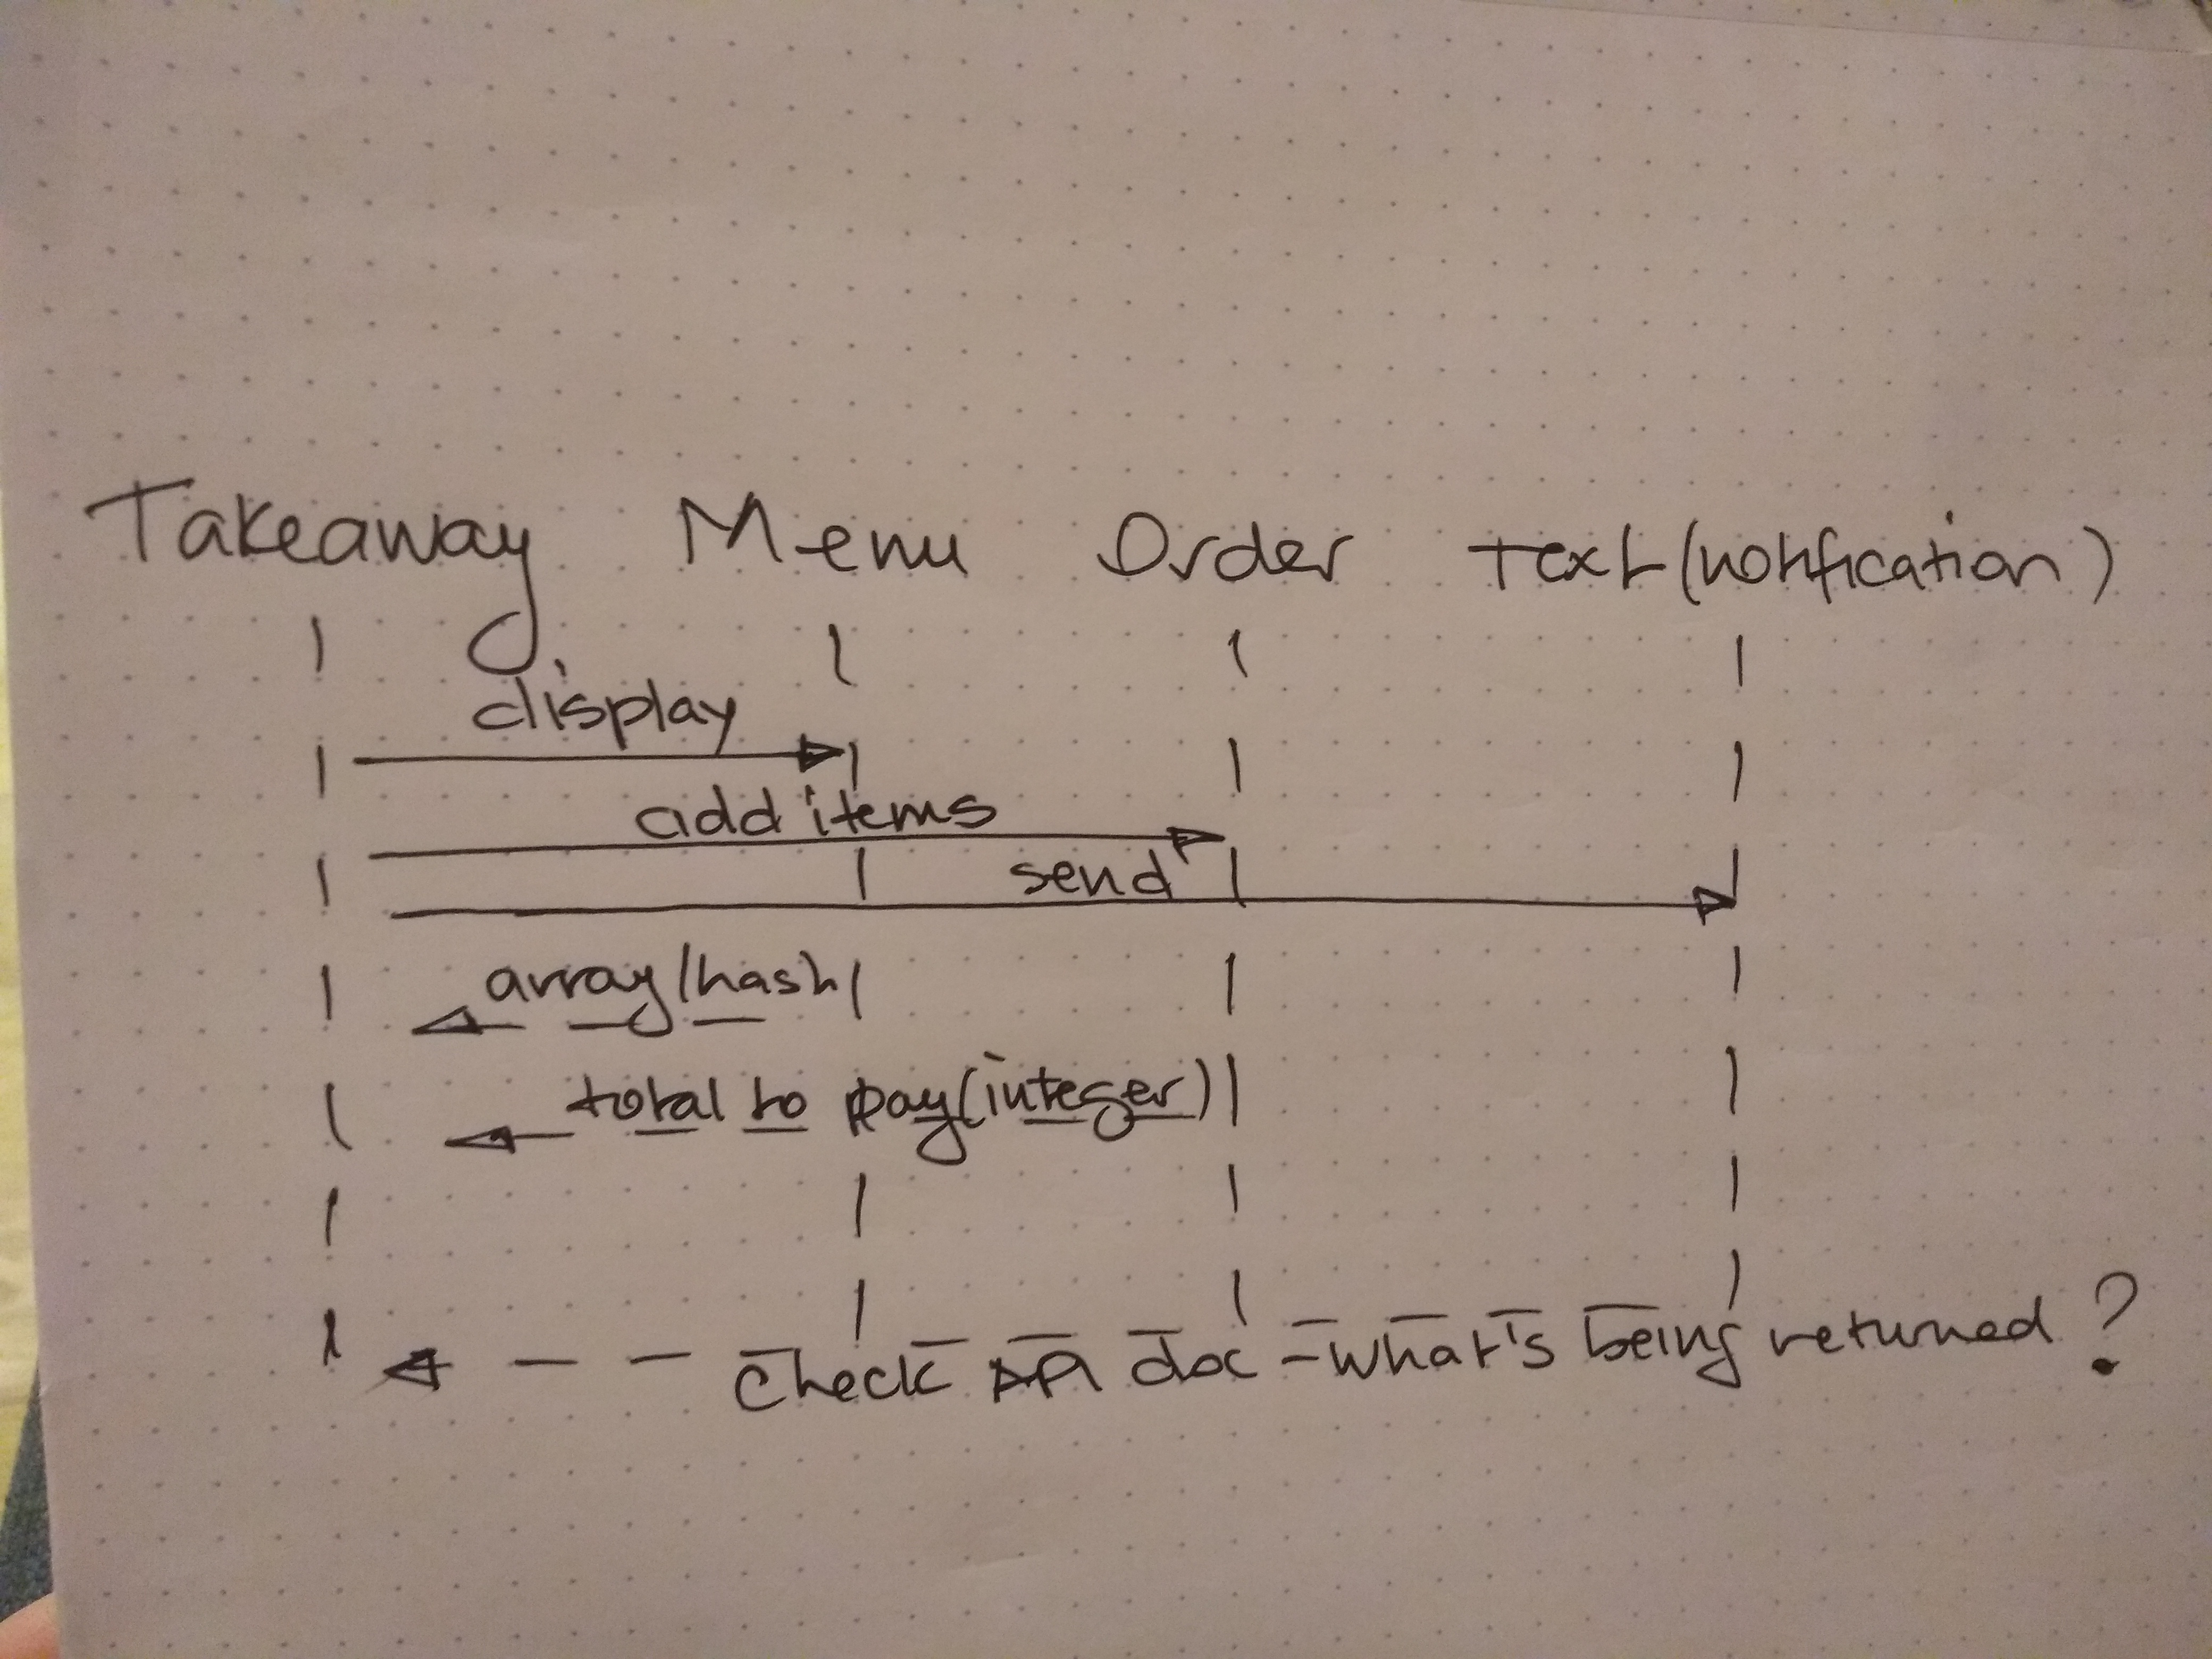 Takeaway Menu Order Text (notification)
display
add items
send
array/hash
total to pay (integer)
check API doc - what's being returned?